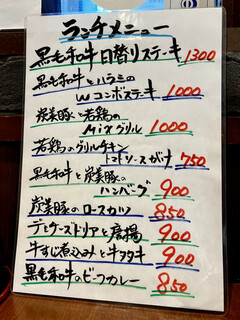 ランチメニュー
黒毛和牛日替りステーキ 1300
黒毛和牛とハラミの
Wコンボステーキ 1000
炭美豚と若鶏の
Mixグリル 1000
若鶏のグリルチキン
トマトソースがけ 750
黒毛和牛と炭美豚の
ハンバーグ 900
炭美豚のロースカツ 850
チーズドリアと唐揚 900
牛すじ煮込みと牛タタキ 900
黒毛和牛のビーフカレー 850